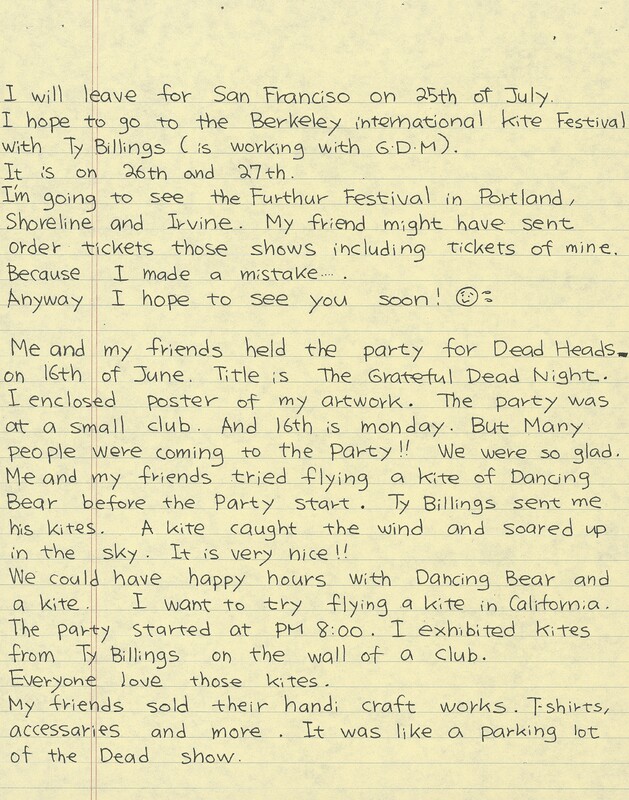 I will leave for San Franciso on 25th of July.
I hope to go to the Berkeley international kite Festival
with Ty Billings ( is working with G.D.M).
It is on 26th and 27th.
I'm going to see the Furthur Festival in Portland,
Shoreline and Irvine. My friend might have sent
order tickets those shows including tickets of mine.
Because I made a mistake.... .
Anyway I hope to see you soon!
Me and my friends held the party for Dead Heads
on 16th of June. Title is The Grateful Dead Night.
I enclosed poster of my artwork. The party was
at a small club. And 16th is monday. But Many
people were coming to the Party!! We were so glad.
Me and my friends tried flying a kite of Dancing
Bear before the Party start. Ty Billings sent me
his kites. A kite caught the wind and soared up
in the sky. It is very nice!!
We could have happy hours with Dancing Bear and
a kite. I want to try flying a kite in California.
The party started at PM 8:00. I exhibited kites
from Ty Billings on the wall of a club.
Everyone love those kites.
My friends sold their handi craft works. T-shirts,
accessaries and more. It was like a parking lot
of the Dead show.